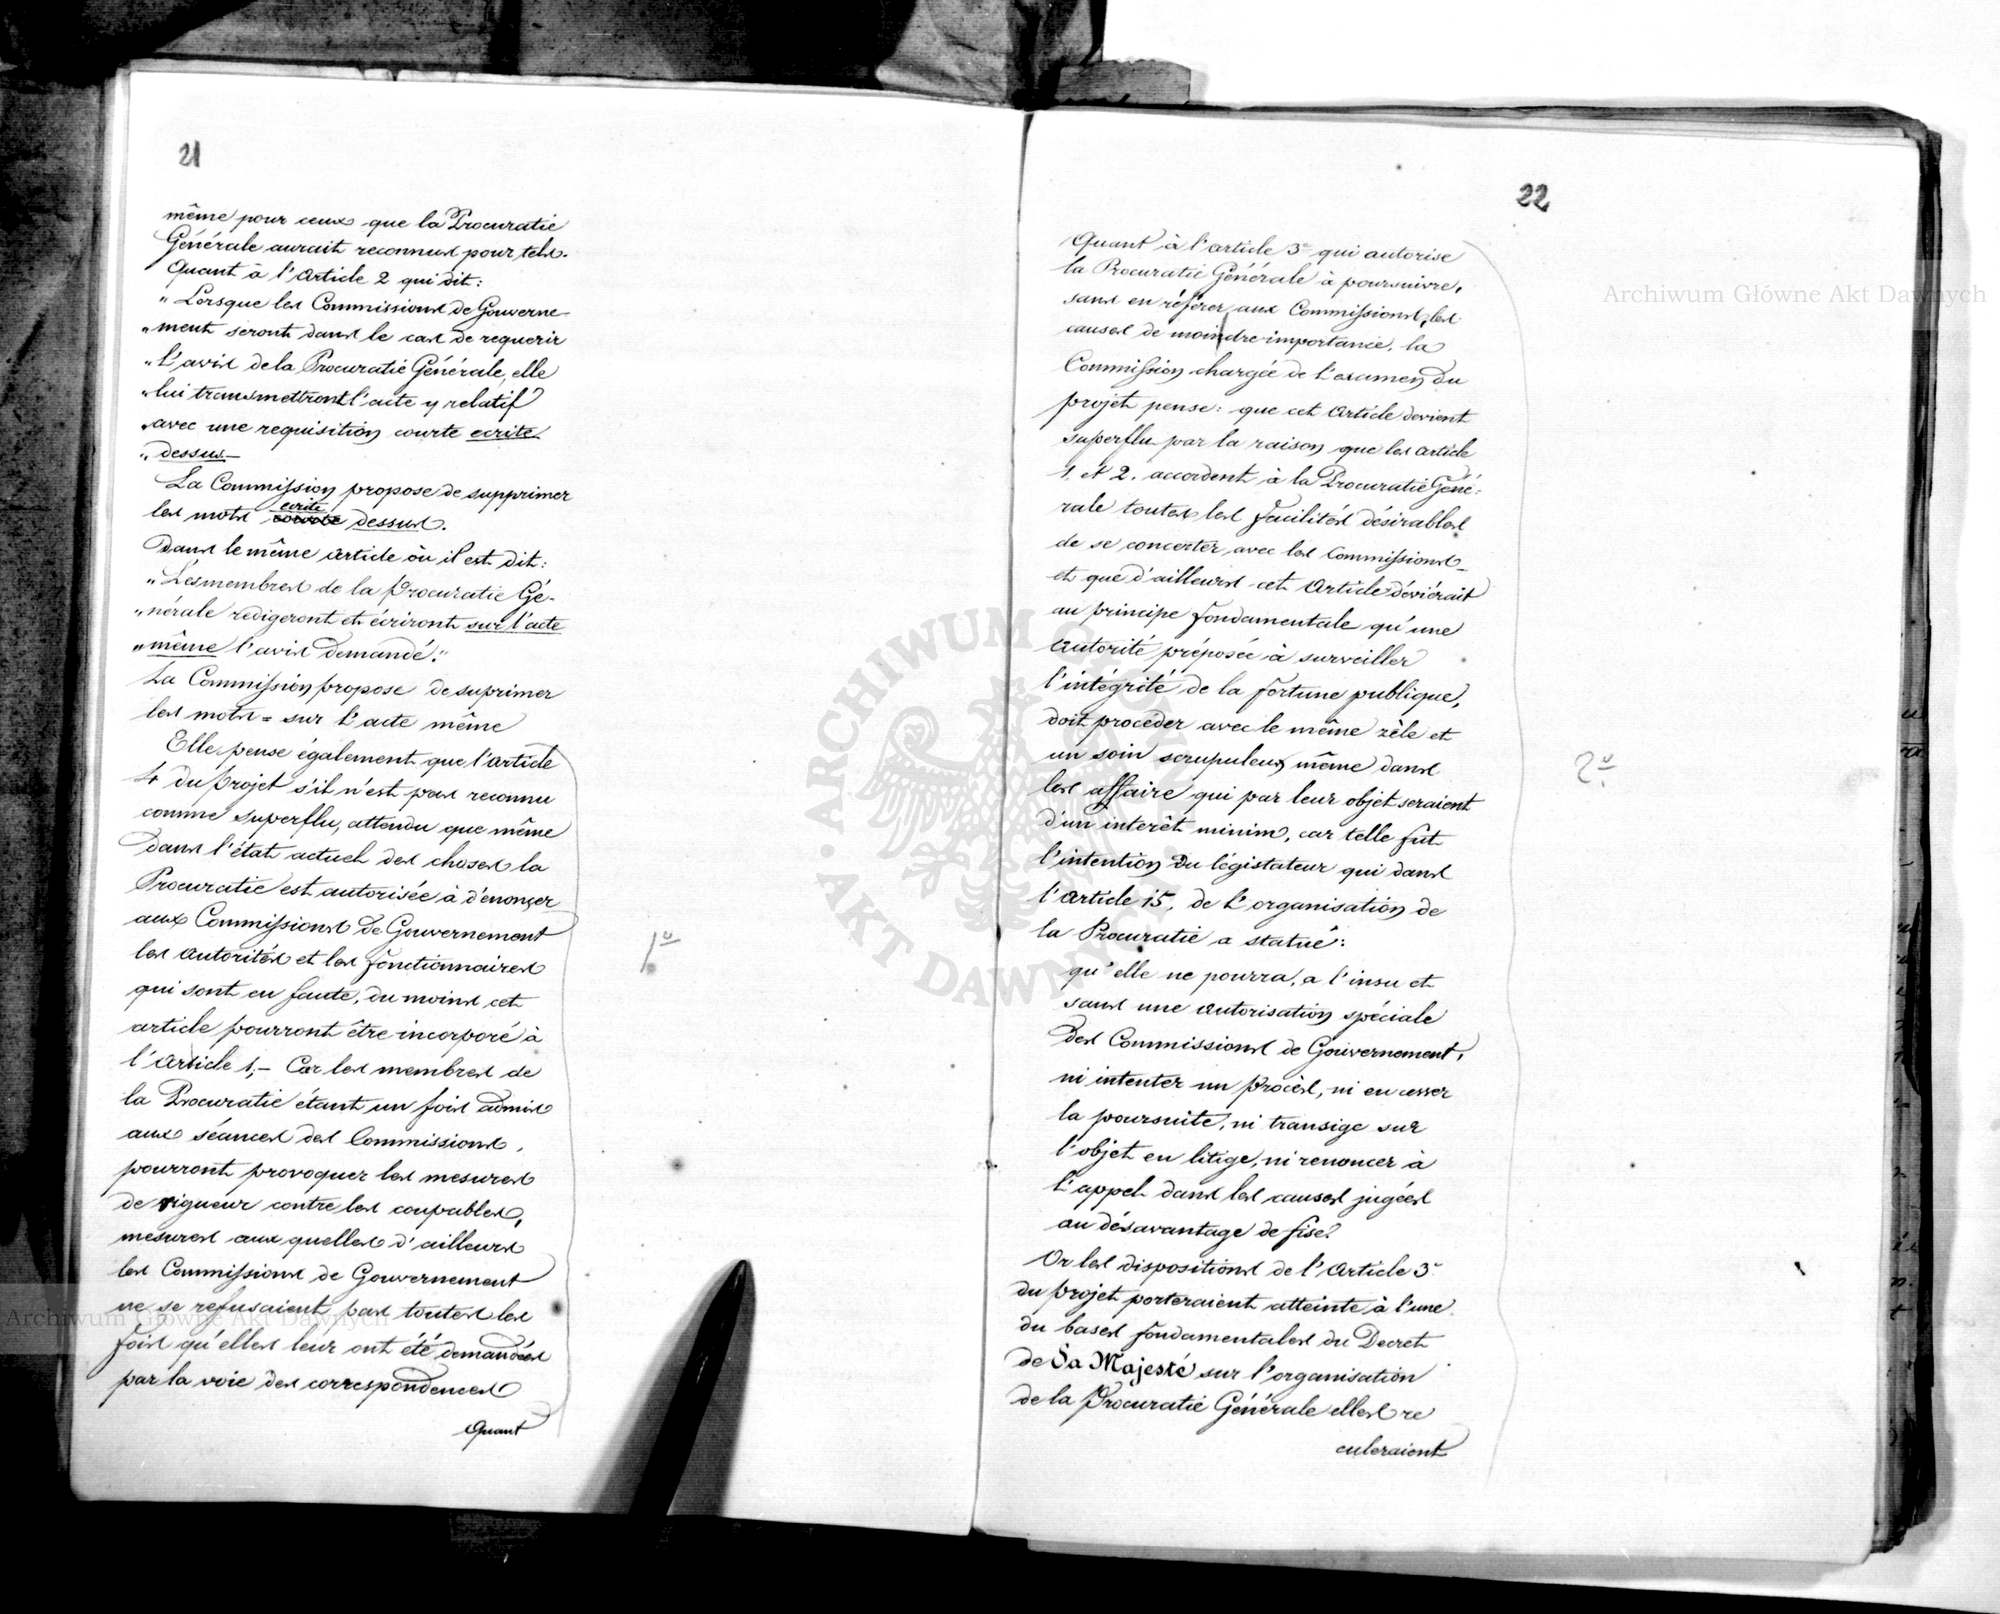 21
même pour ceux que la Procuratie
Générale aurait reconnus pour tels.
Quant à l'Article 2 qui dit:
„Lorsque les Commissions de Gouverne-
„ment seront dans le cas de requerir
„l'avis de la Procuratie Générale, elle
„lui transmettront l'acte y relatif
„avec une requisition courte ecrite
„dessus—
La Commission propose de supprimer
les mots ecrite dessus.
Dans le même article où il est dit:
„Les membres de la Procuratie Gé-
„nérale redigeront et écriront sur l'acte
„même l'avis demandé."
La Commission propose de suprimer
les mots = sur l'acte même
Elle pense également que l'article
4 du projet s'il n'est pas reconnu
comme superflu, attendu que même
dans l'état actuel des choses la
Procuratie est autorisée à dénonçer
aux Commissions de Gouvernement
les autorités et les fonctionnaires
qui sont en faute, du moins cet
article pourront être incorporé à
l'Article 1,— Car les membres de
la Procuratie étant un fois admis
aux séances des Commissions,
pourront provoquer les mesures
de rigueur contre les coupables,
mesures aux quelles d'ailleurs
les Commissions de Gouvernement
ne se refusaient pas toutes les
fois qu'elles leur ont été demandées
par la voie des correspondences
Quant
1º
22
Quant à l'article 3e qui autorise
la Procuratie Générale à poursuivre,
sans en référer aux Commissions, les
causes de moindre importance, la
Commission chargée de l'examen du
projet pense: que cet Article devient
superflu par la raison que les article
1, et 2, accordent à la Procuratie Géné-
rale toutes les facilités désirables
de se concerter avec les Commissions—
et que d'ailleurs cet Article déviérait
au principe fondamentale qu'une
autorité préposée à surveiller
l'intégrité de la fortune publique,
doit procéder avec le même zèle et
un soin scrupuleux même dans
les affaire qui par leur objet seraient
d'un interêt minim, car telle fut
l'intention du législateur qui dans
l'Article 15, de l'organisation de
la Procuratie a statué:
qu'elle ne pourra, a l'insu et
sans une autorisation spéciale
des Commissions de Gouvernement,
ni intenter un procès, ni en cesser
la poursuite, ni transige sur
l'objet en litige, ni renoncer à
l'appel dans les causes jugées
au désavantage de fisc.
Or les dispositions de l'Article 3e
du projet porteraient atteinte à l'une
du bases fondamentales du Decret
de Sa Majesté sur l'organisation
de la Procuratie Générale elles re
culeraient
2º
Archiwum Główne Akt Dawnych
Archiwum Główne Akt Dawnych
ARCHIWUM GŁÓWNE AKT DAWNYCH